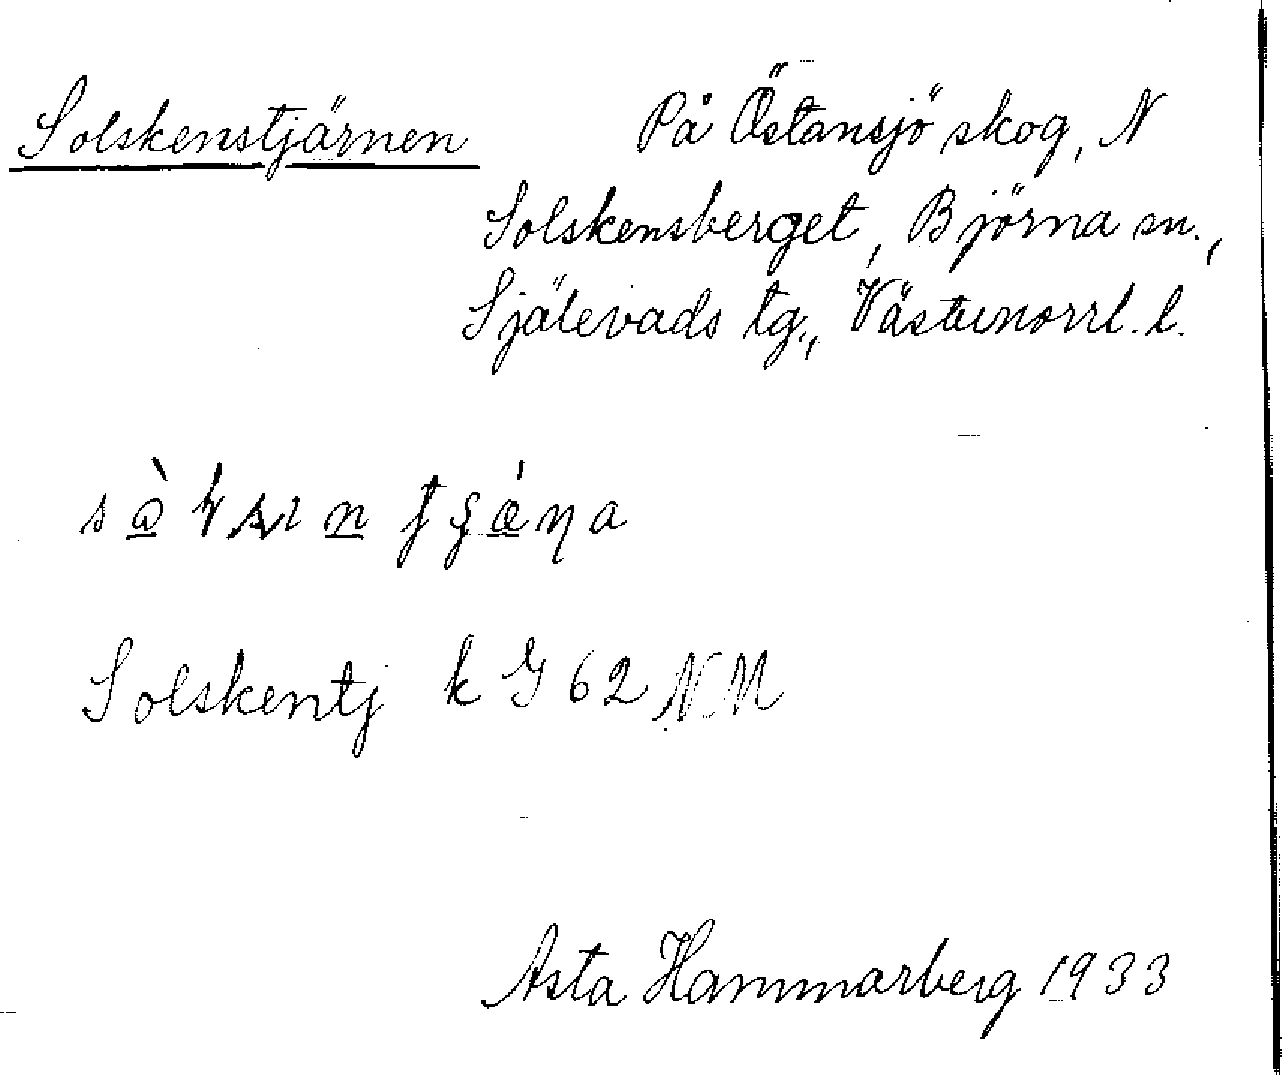 Solskenstjärnen På Östansjö skog, N
Solskensberget, Björna sn.,
Själevads tg., Västernorrl. l.
Solskentj k G 62 NM
Asta Hammarberg 1933